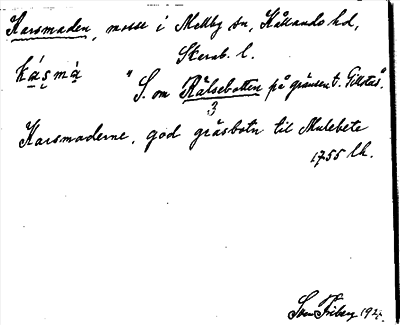 Karsmaden, mosse i Mellby sn, Kållands hd,
Skarab. l.
kásmà " S. om Rälsebotten på gränsen t. Gillstad.
3
Karsmaderne, god gräsbotn til Mulebete
1755 lh.
Sven Friberg 192